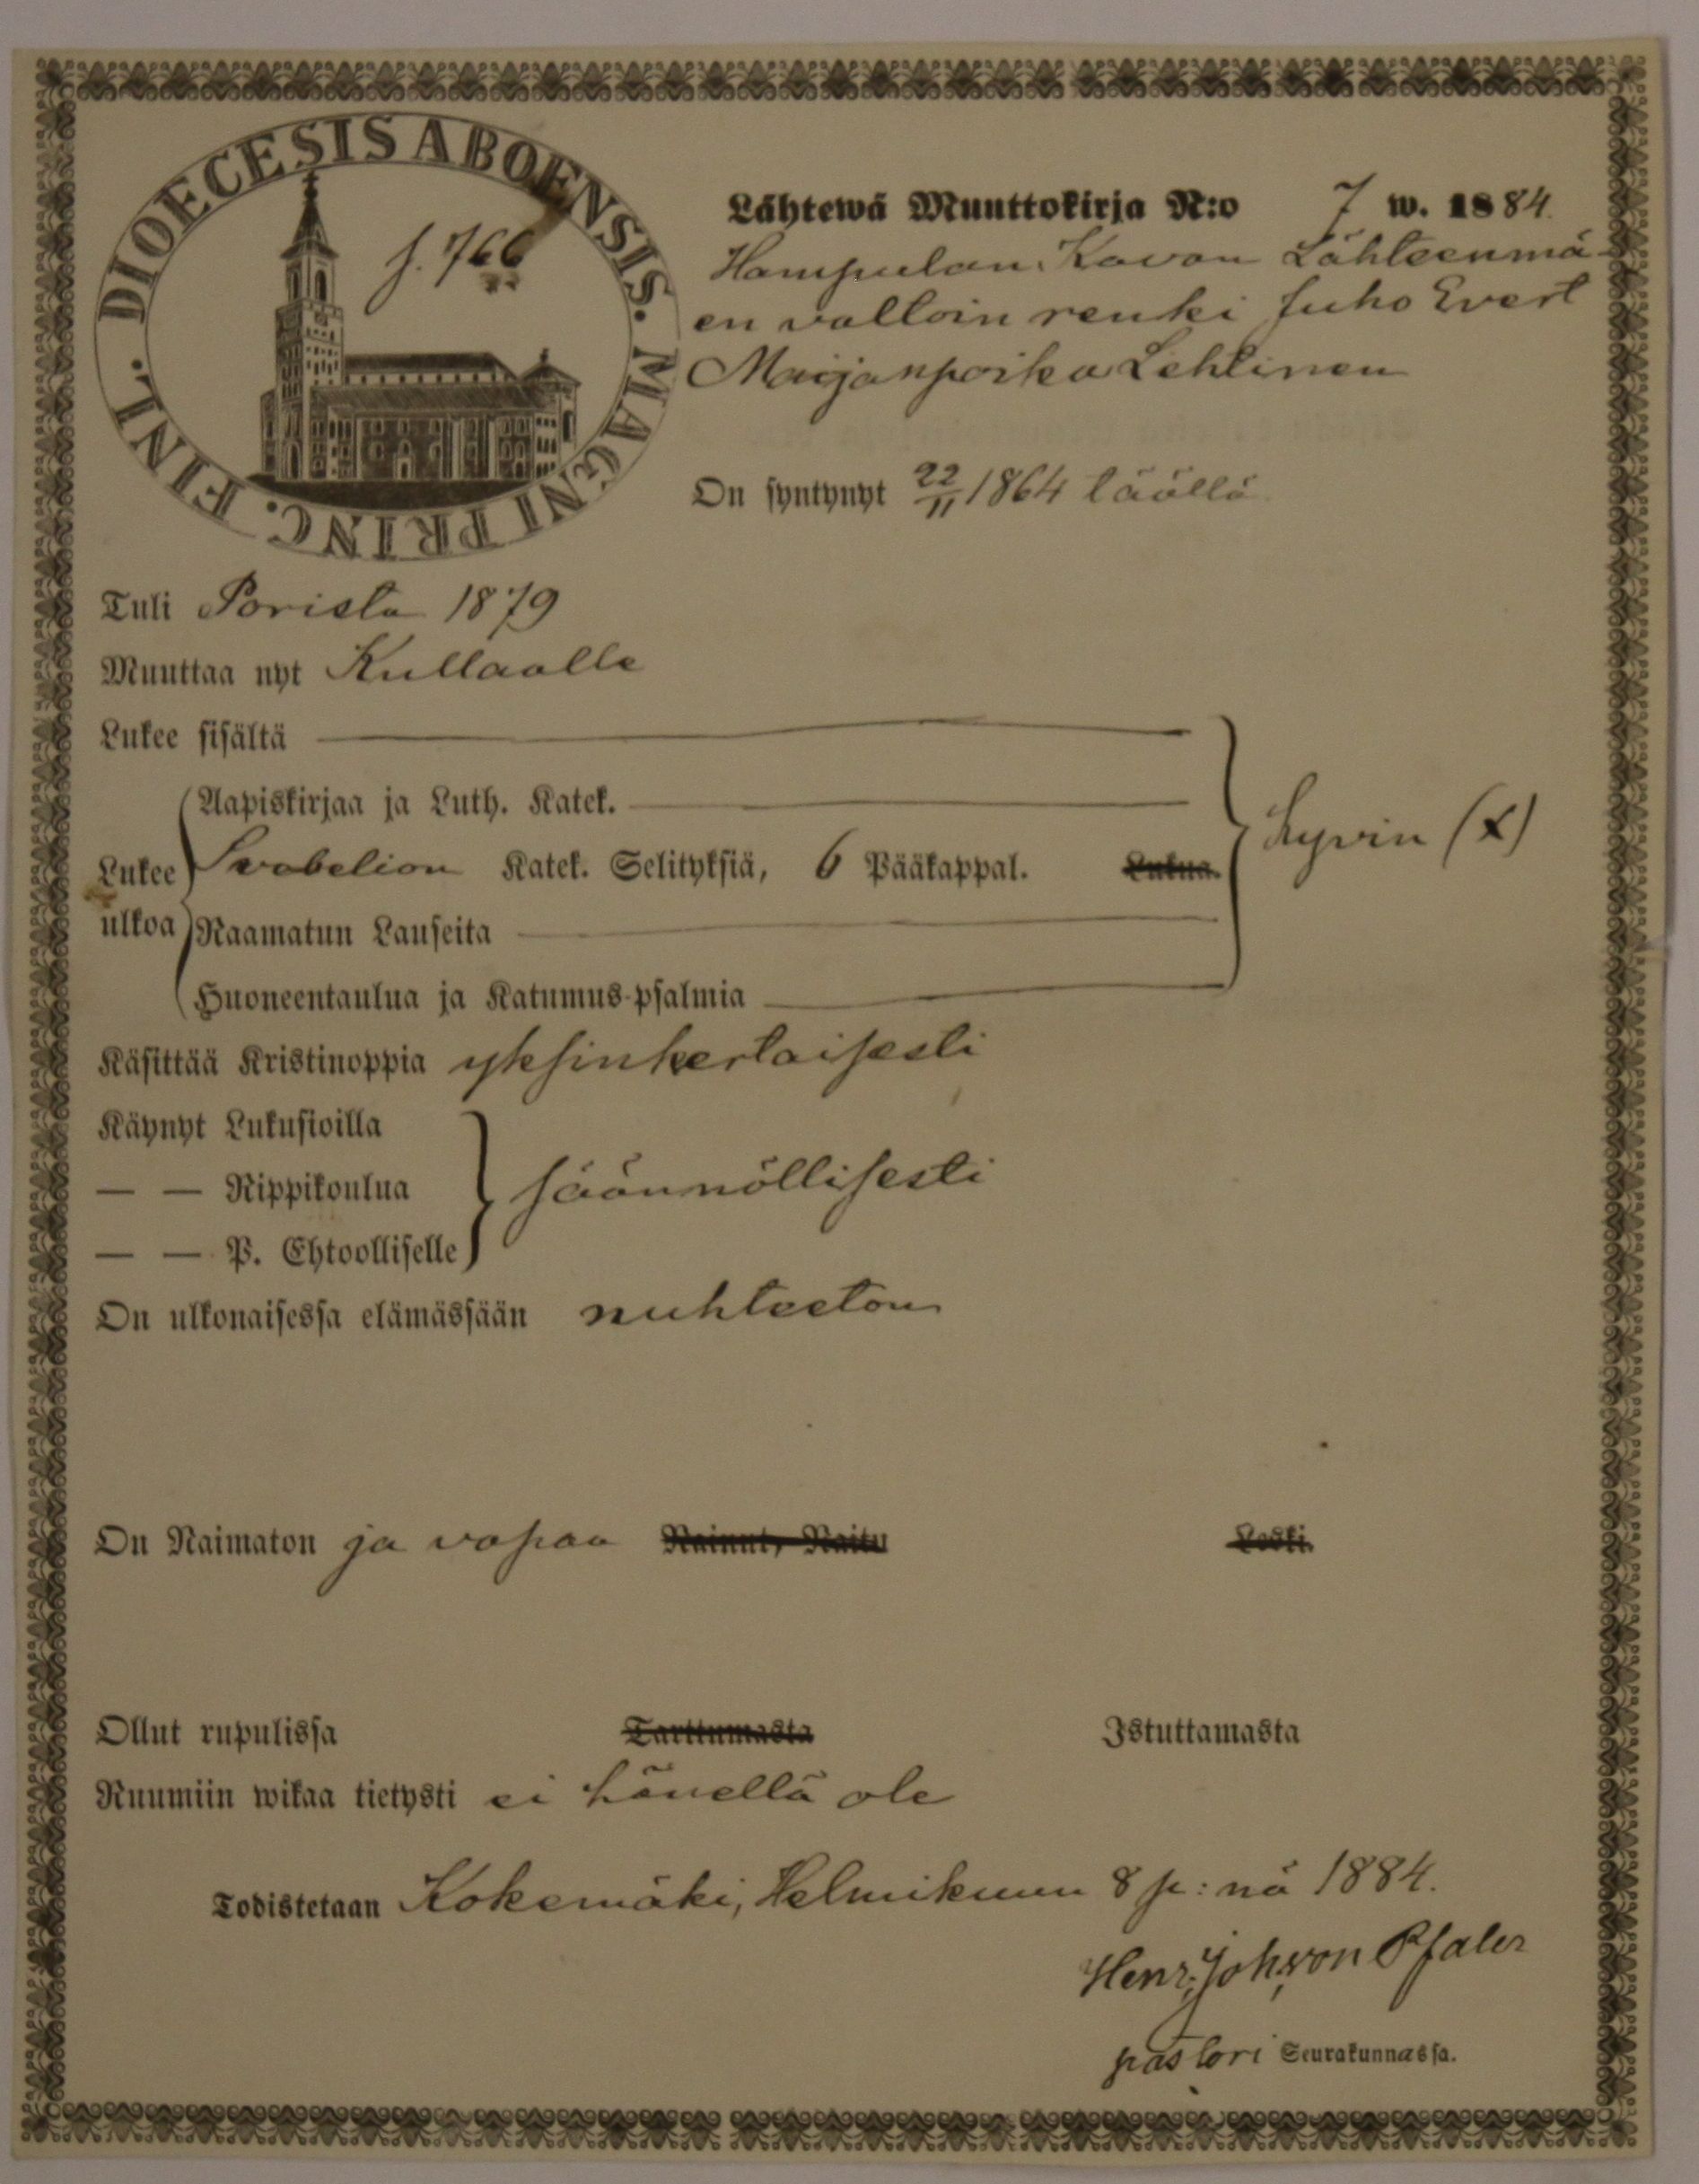 DIOECESIS ABOENSIS. MAGNI PRINC. FINL.
f. 766
Lähtewä Muuttokirja N:o 7 w. 1884.
Hampulan Kavon Lähteenmä-
en valloin renki Juho Evert
Maijanpoika Lehtinen
On syntynyt 22/11 1864 täällä
Tuli Porista 1879
Muuttaa nyt Kullaalle
Lukee sisältä
Aapiskirjaa ja Luth. Katek.
Lukee ulkoa
Svebelion Katek. Selityksiä, 6 Pääkappal. Lukua.
Raamatun Lauseita
Huoneentaulua ja Katumus-psalmia
hyvin (x)
Käsittää Kristinoppia yksinkertaisesti
Käynyt Lukusioilla
— — Rippikoulua
säännöllisesti
— — P. Ehtoolliselle
On ulkonaisessa elämässään nuhteeton
On Naimaton ja vapaa Nainut, Naitu Leski.
Ollut rupulissa Tarttumasta Istuttamasta
Ruumiin wikaa tietysti ei hänellä ole
Todistetaan Kokemäki, Helmikuun 8 p:nä 1884.
Henr. Joh. von Pfaler
pastori Seurakunnassa.